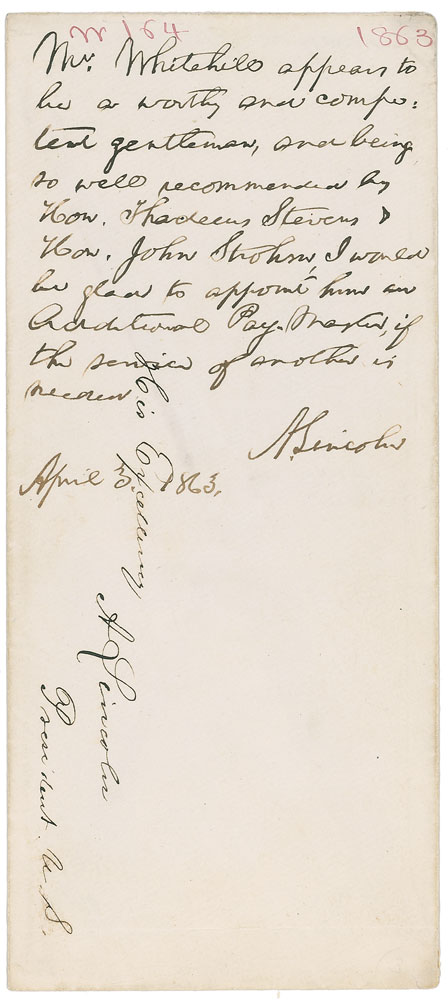 W 164 1863
Mr. Whitehill appears to
be a worthy and compe-
tent gentleman, and being
so well recommended by
Hon. Thadeus Stevens &
Hon. John Strohm, I would
be glad to appoint him an
Additional Pay-Master, if
the service of another is
needed
A. Lincoln
April 3. 1863.
His Excellency
A Lincoln
President U. S.